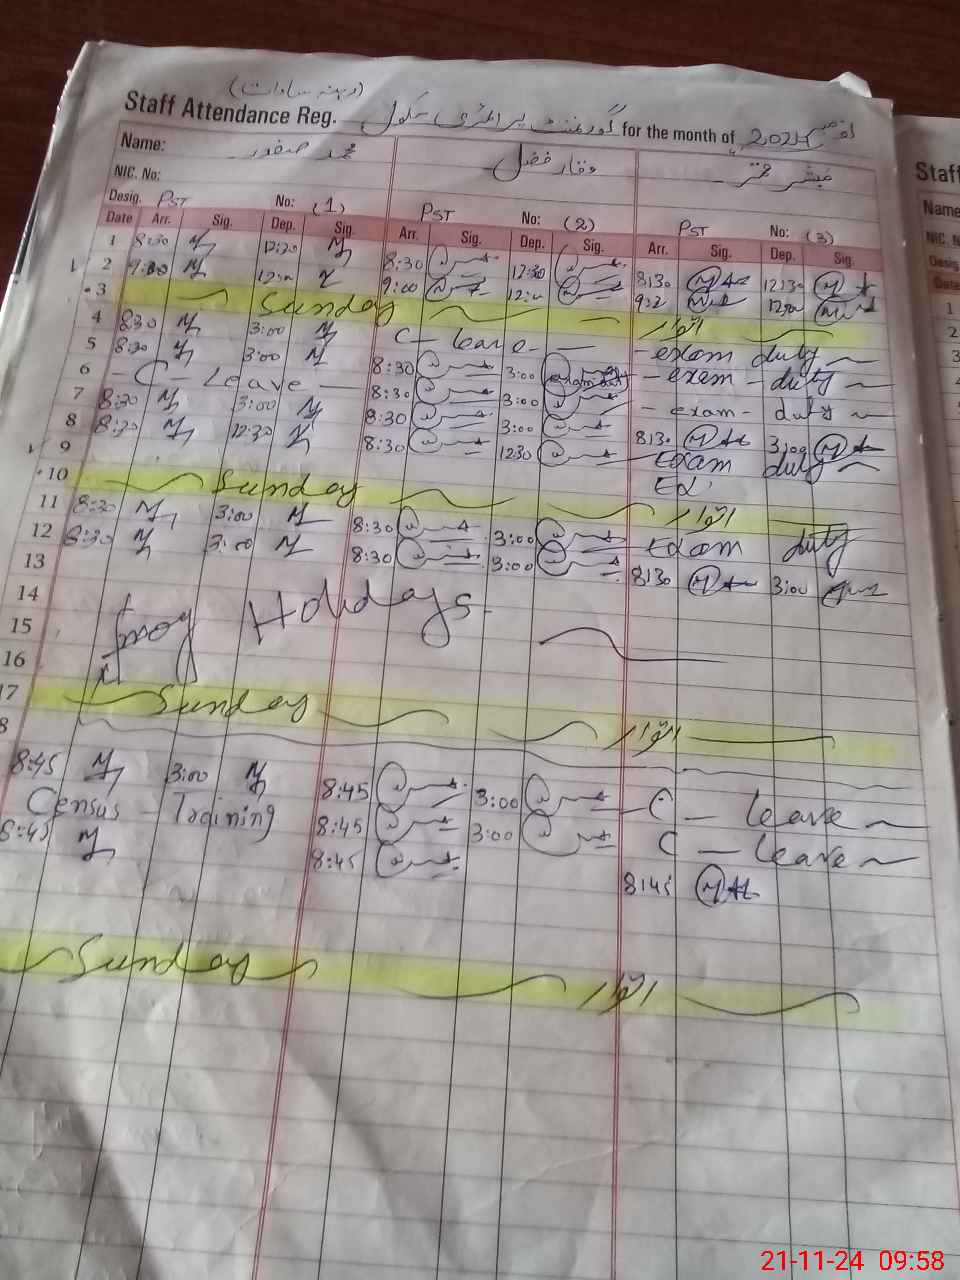 (دہنہ سادات)
Staff Attendance Reg. گورنمنٹ پرائمری سکول for the month of 2024
Name: محمد صفدر وقار فضل مبشر
NIC. No:
Desig. PST No: (1) PST No: (2) PST No: (3)
Date Arr. Sig. Dep. Sig. Arr. Sig. Dep. Sig. Arr. Sig. Dep. Sig.
1 8:30 12:30 8:30 12:30 8:30 12:30
2 9:00 9:00
3 Sunday اتوار
4 8:30 3:00 C - leave - exam duty
5 8:30 3:00 8:30 3:00 exam duty - exam - duty
6 - C - Leave - 8:30 3:00 - exam - duty
7 8:30 3:00 8:30 3:00 8:30 3:00
8 8:30 12:30 8:30 12:30 Exam duty
9
10 Sunday اتوار
11 8:30 3:00 8:30 3:00 Exam duty
12 8:30 3:00 8:30 3:00 8:30 3:00
13
14 Smog Holidays
15
16
17 Sunday اتوار
8
8:45 3:00 8:45 3:00 - C - leave
Census - Training 8:45 3:00 C - leave
8:45 8:45 8:45
Sunday اتوار
Staff
Name
NIC. N
Desig
Date
1
2
3
21-11-24 09:58